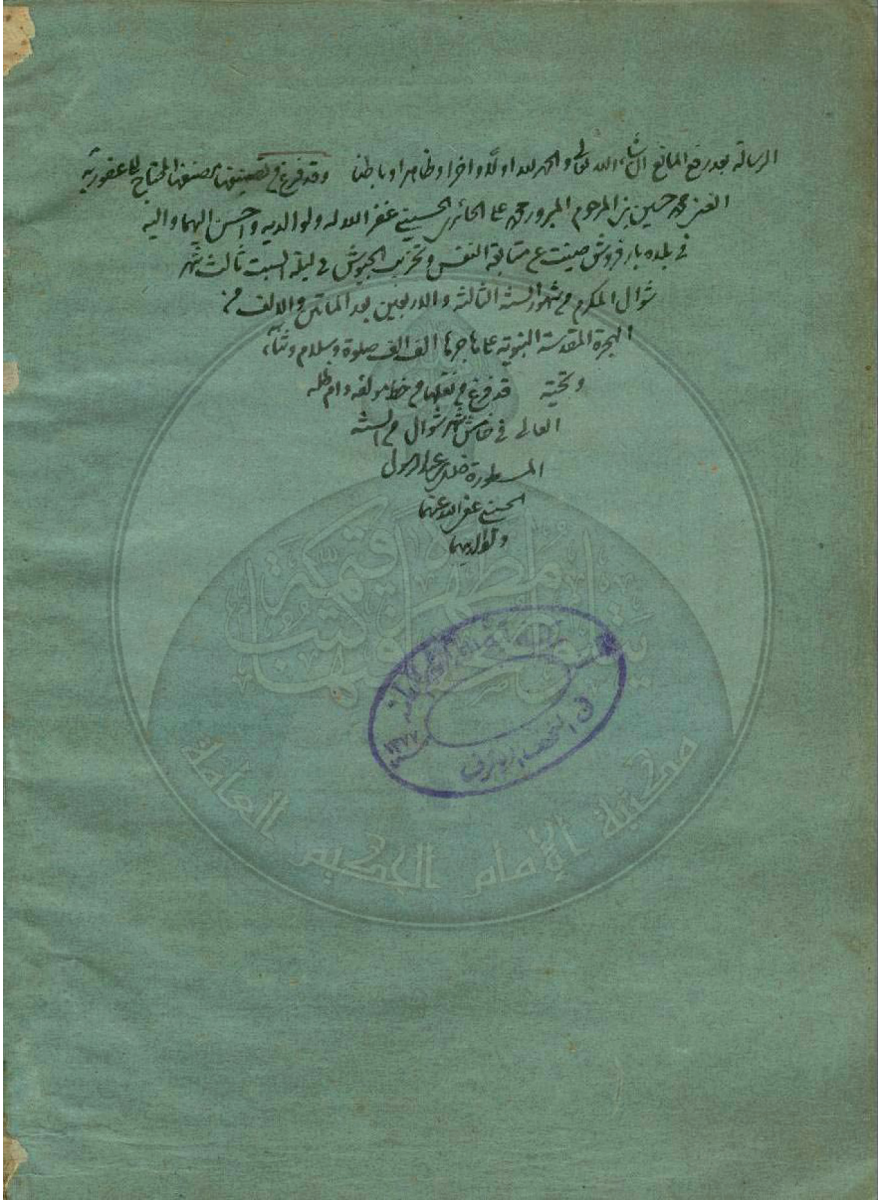 الرسالة بعد رفع المانع ان شاء الله تعالى والحمد لله اولا واخرا وظاهرا وباطنا وقد فرغ من تصنيفها مصنفها المحتاج الى عفو ربه
الغنى محمد حسين بن المرحوم المبرور محمد على الحائرى الحسينى غفر الله له ولوالديه واحسن اليهما واليه
فى بلده بار فروش صينت عن متابعة النفس وتخريب الجيوش فى ليلة السبت ثالث شهر
شوال المكرم من شهور السنة الثالثة والاربعين بعد الماتين والالف من
الهجرة المقدسة النبوية على هاجرها الف الف صلوة وسلام وثناء
وتحية قد فرغ من نقلها من خط مولفه دام ظله
العالى فى شهر شوال من السنة
المسطورة عبد الرسول
الحسينى عفى الله عنهما
ولوالديهما
١٣٧٧
مكتبة الإمام الحكيم العامة